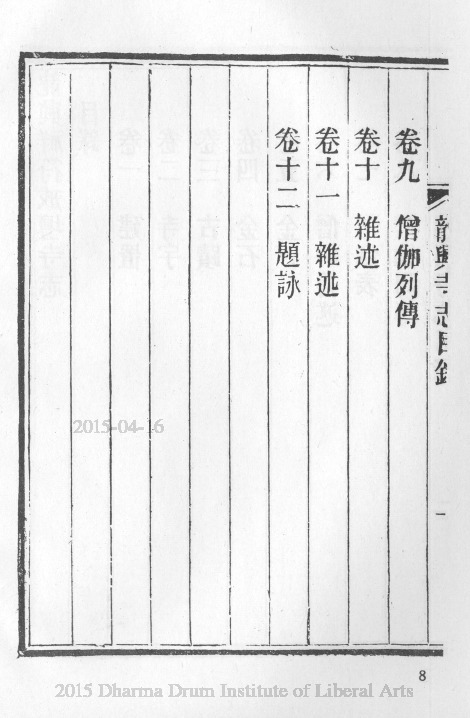 龍興寺志目錄
一
卷九 僧伽列傳
卷十 雜述
卷十一 雜述
卷十二 題詠
2015-04-16
8
2015 Dharma Drum Institute of Liberal Arts